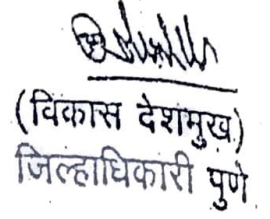 (विकास देशमुख)
जिल्हाधिकारी पुणे